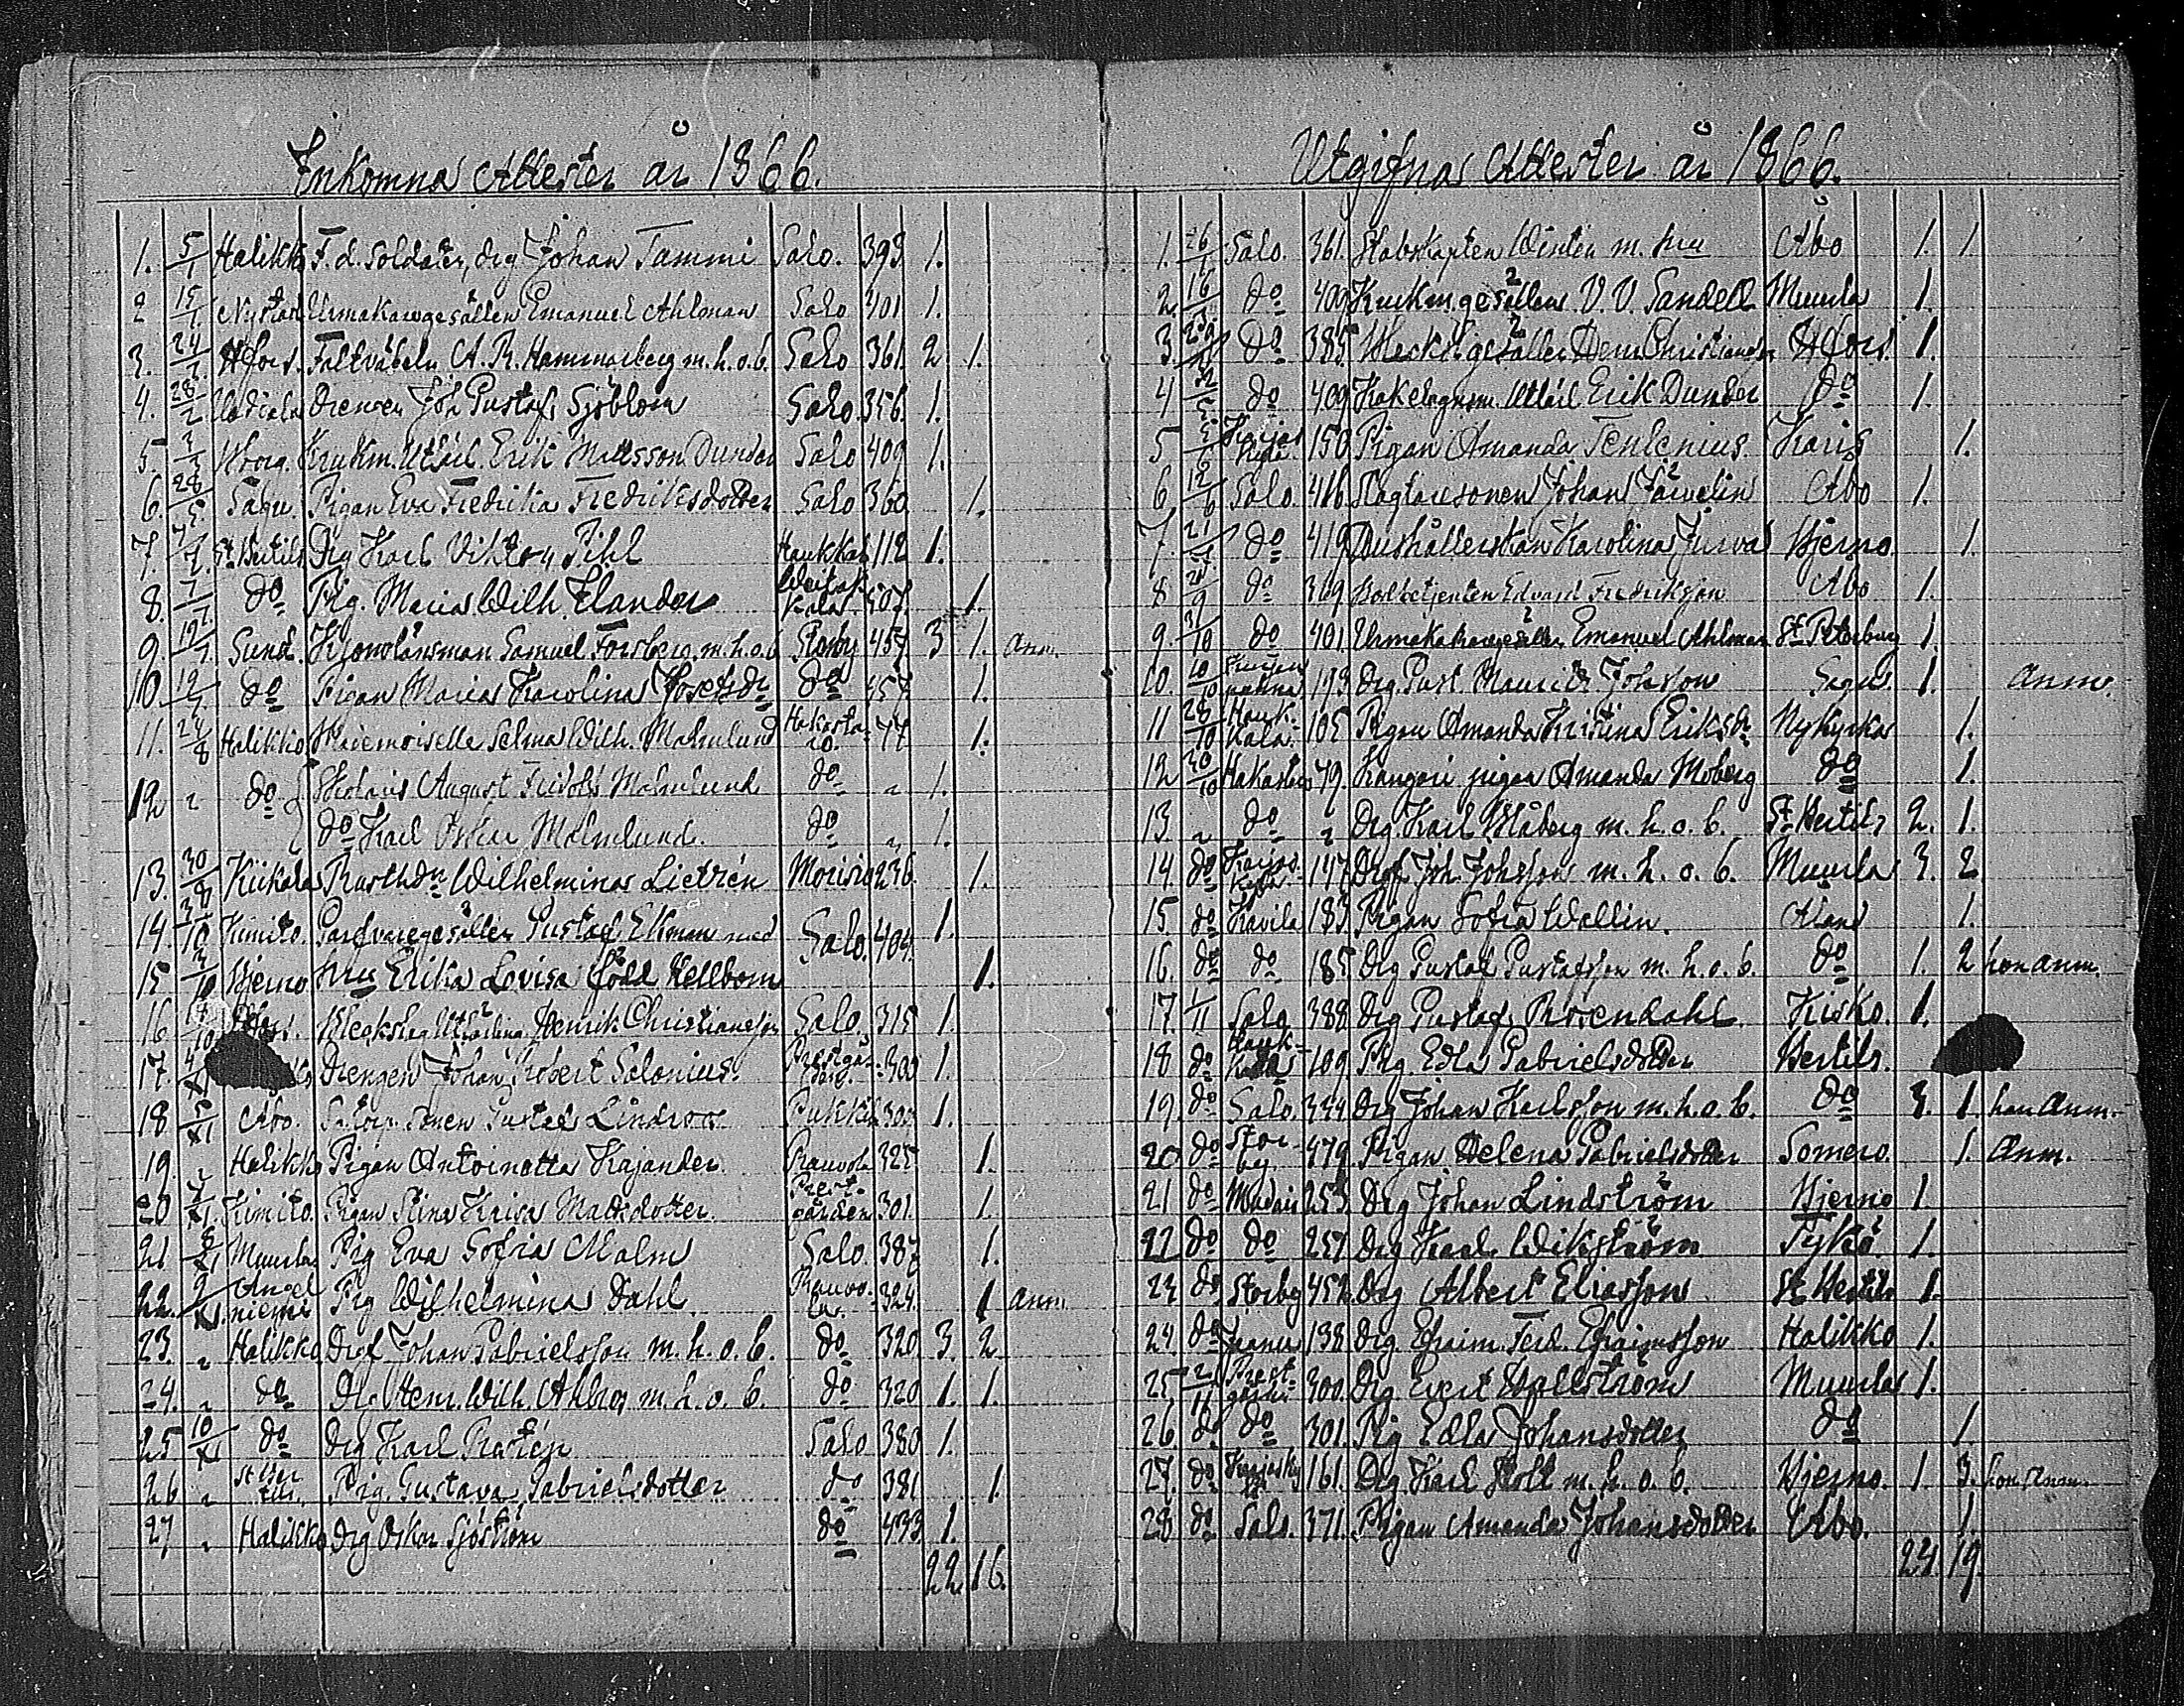 Inkomna Attester år 1866.
1. 5/1 Halikko F. d. Soldaten, drg Johan Tammi Salo. 393. 1.
2 15/1 Nystad Urmakaregesällen Emanuel Ahlman Salo 401 1.
3. 24/1 Hfors. Fältväbeln A. R. Hammarberg m. h. o. b. Salo 361 2 1.
4. 28/2 Drengen Joh Gustaf Sjöblom Salo. 356. 1.
5. 3/3 Wborg. Krukm. Utlärl. Erik Mattsson Dunder Salo 409 1.
6. 28/5. Sagu. Pigan Eva Fredrika Fredriksdotter Salo 360 1.
7. St Bertils Drg Karl Viktor Pihl Haukkala 112 1.
8. 7/7. do Pig. Maria Wilh. Elander 507. 1.
9. 19/7 Sund. Kronolänsman Samuel Forsberg m. h. o. b Storby 457 3 1. Anm.
10. 19/7 do Pigan Maria Karolina Josefsdr do 457 1.
11. 24/8 Halikko Mademoiselle Selma Wilh. Malmlund Hakosta- ro. 77 1.
12 " do August Fridolf Malmlund do " 1.
do Karl Oskar Malmlund. do " 1.
13. 30/8 Kiikala Rusthdr Wilhelmina Lietzén Moisio 236. 1.
14. 3/10 Kimito. Garfvaregesällen Gustaf Ekman med Salo. 404. 1.
15 3/10 Bjerno hru Erika Lovisa född Hellbom 1.
16 /10 Hfors. Bleckslag Utlärling Henrik Christiansson Salo. 315 1.
17. 4/XI Drengen Johan Robert Salonius. Prestgår- den. 300 1.
18 5/XI Åbo. Sonen Gustaf Lindroos Pukkila 303. 1.
19. " Halikko Pigan Antoinetta Kajander. Rauvola 325 1.
20 /XI. Kimito. Pigan Stina Kaisa Mattsdotter. Prest- gården 301. 1.
21 8/XI Muurla Pig Eva Sofia Malm Salo. 387 1.
22. 9/XI. Angel niemi Pig Wilhelmina Dahl Rauvo- la. 324. 1 Anm.
23. " Halikko Drgf Johan Gabrielsson m. h. o. b. do 320 3. 2
24. " do Henr. Wilh. Ahlros m. h. o. b. do 320 1. 1.
25 10/XI do Drg Karl Rosten Salo 380 1.
26 " St Ber tils. Pig. Gustava Gabrielsdotter do 381 1
27 " Halikko Drg Oskar Sjöström do 433 1.
22 16.
Utgifna Attester år 1866.
1. 26/1 Salo. 361. Stabskapten Wintén m. hru Åbo 1. 1
2. 16/ do 409 Krukm. gesällen V. V. Sandell Muurla 1.
3. do 385. Bleckslgesällen Henr Christiansson Hfors. 1.
4 /5 do 409 Kakelugnsm. Utlärl Erik Dunder do 1.
5 Karjas kylä 150 Pigan Amanda Tenlenius. Karis 1.
6 12/6 Salo. 416. Johan Järvelin Åbo 1.
7. 21/ do 419 Hushållerskan Karolina Jurva Bjerno. 1.
8 /9 do 369 Bodbetjenten Edvard Fredriksson Åbo 1.
9. 3/10 do 401. Urmakaregesällen Emanuel Ahlman St Petersburg 1.
10. 10/10 193 Drg. Gust. Maurits Johsson Sagu. 1. Anm.
11 28/10 Hauk- kala. 105 Pigan Amanda Kristina Eriksdr Nykyrka 1.
12 30/10 Hakastaro 79. pigan Amanda Moberg do 1.
13. " do " Drg. Karl Moberg m. h. o. b. St Bertils 2. 1.
14. do Karjas- kylä. 147 Drgf. Joh. Johsson m. h. o. b. Muurla 3. 2
15. do Kavila 183. Pigan Sofia Wallin. Åland 1.
16. do do 185 Drg Gustaf Gustafsson m. h. o. b. do 1. 2 hon anm.
17. 1/11 Salo 388 Drg Gustaf Rosendahl. Kisko. 1.
18 do Hauk- kala 109. Pig Edla Gabrielsdotter Bertils.
19. do Salo. 344. Drg Johan Karlsson m. h. o. b. do 3. 1. han Anm.
20. do Stor- by. 479. Pigan Helena Gabrielsdotter Somero. 1. Anm.
21 do 253. Drg Johan Lindström Bjerno 1.
22 do do 257. Drg Karl Wikström Tykö. 1.
23 do Storby 452. Drg Albert Eliasson St Bertils 1.
24. do 138 Drg Efraim Ferd. Efraimsson Halikko 1.
25 2/11 Prest- gården 300. Drg Evert Hallström Muurla 1.
26 do do 301. Pig Edla Johansdotter do 1
27. do Karjasky 161. Drg Karl Holl m. h. o. b. Bjerno. 1 3. hon Anm.
28 do Salo. 371. Pigan Amanda Johansdotter Åbo. 1.
24. 19.